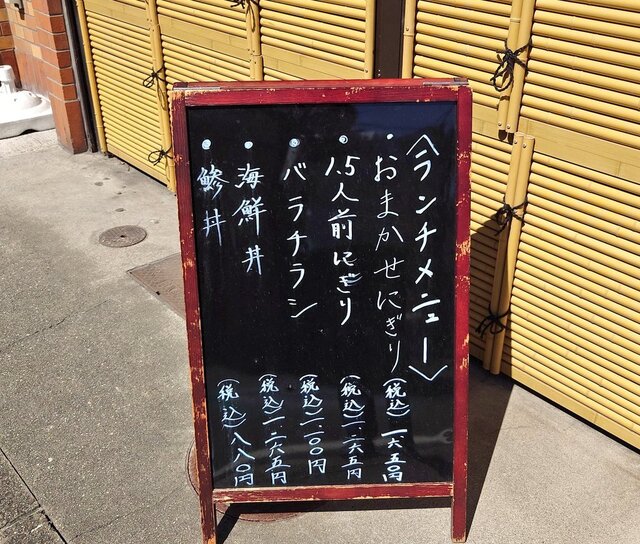 〈ランチメニュー〉
・おまかせにぎり(税込)一六五〇円
・1.5人前にぎり(税込)一.二六五円
・バラチラシ(税込)一.一〇〇円
・海鮮丼(税込)一.二六五円
・鯵丼(税込)八八〇円